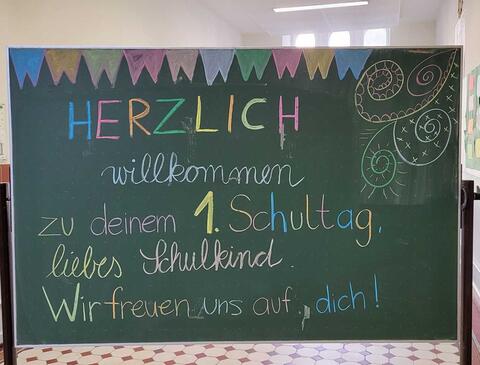 HERZLICH
willkommen
zu deinem 1. Schultag,
liebes Schulkind.
Wir freuen uns auf dich!